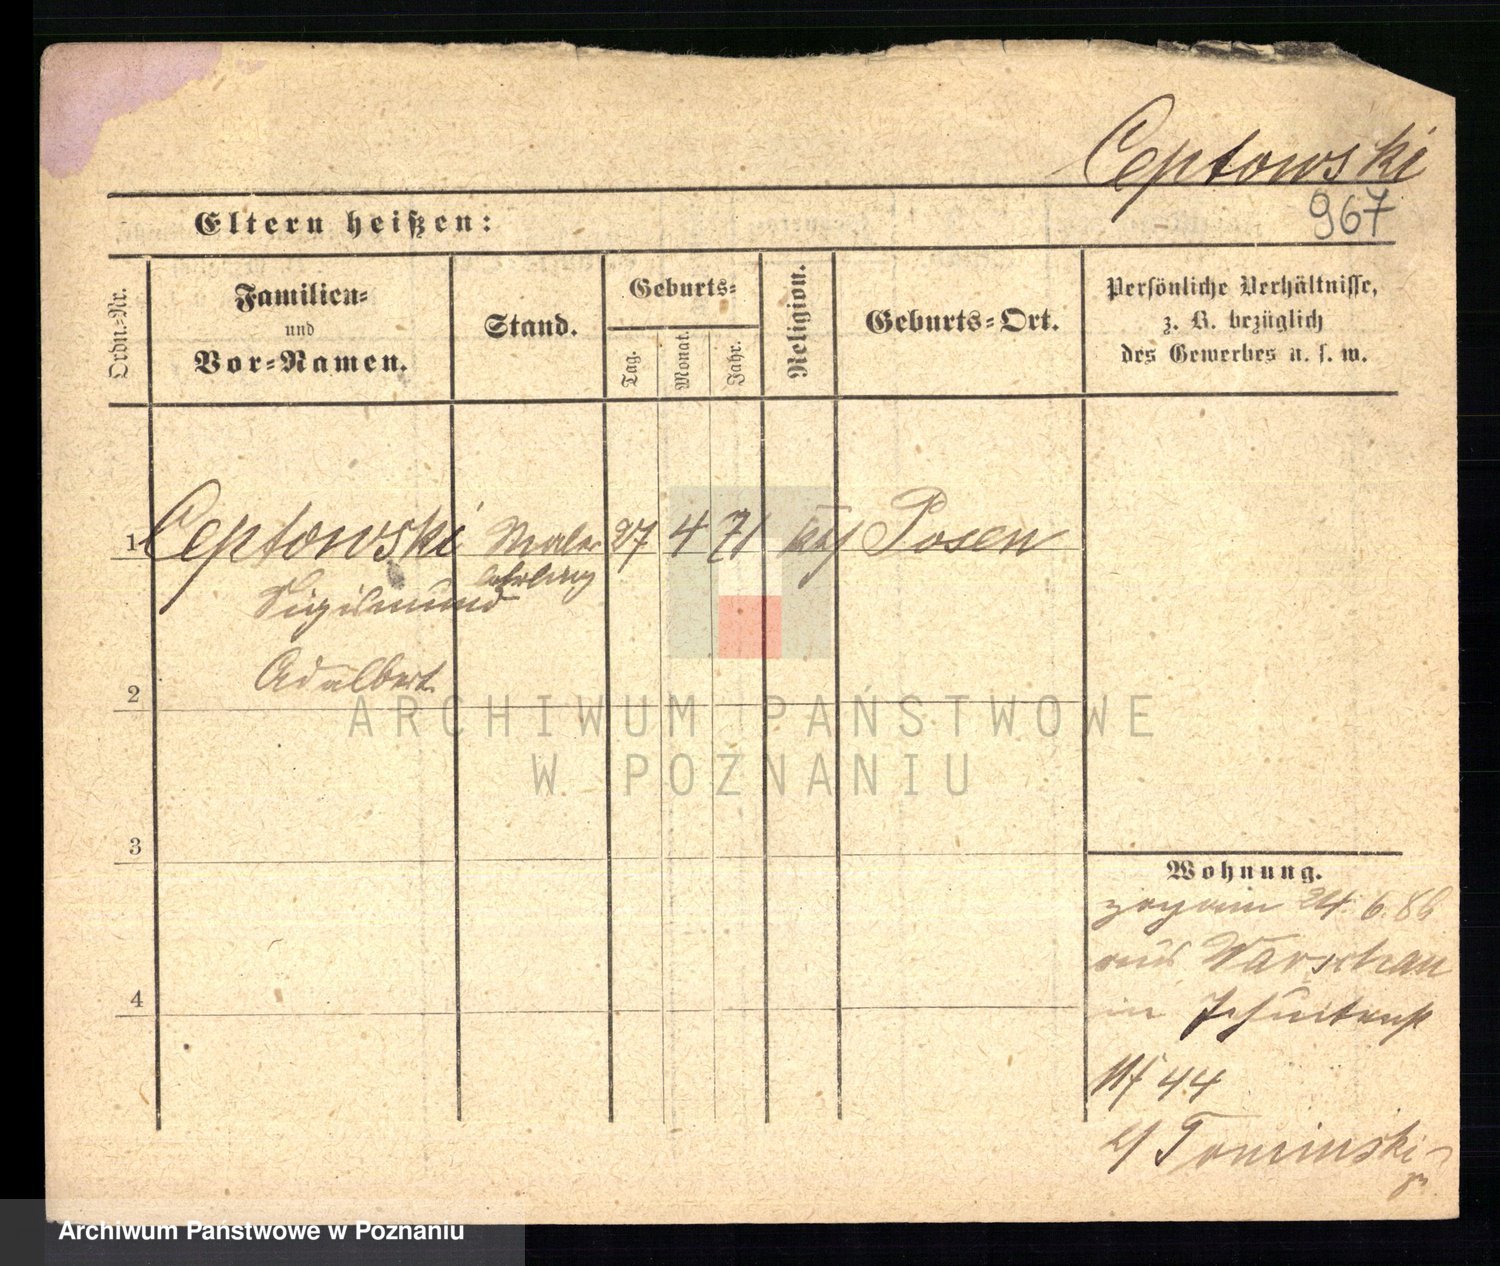 Ceptowski
967
Eltern heißen:
Ordn.-Nr.
Familien-
und
Vor-Namen.
Stand.
Geburts-
Tag.
Monat.
Jahr.
Religion.
Geburts-Ort.
Persönliche Verhältnisse,
z. B. bezüglich
des Gewerbes u. s. w.
1 Ceptowski Maler 27 4 71 kath Posen
lehrling
Sigismund
2 Adalbert
3
4
Wohnung.
24. 6. 86
aus Warschau
in Jesuitenst
44
Tominski
ARCHIWUM PAŃSTWOWE
W POZNANIU
Archiwum Państwowe w Poznaniu